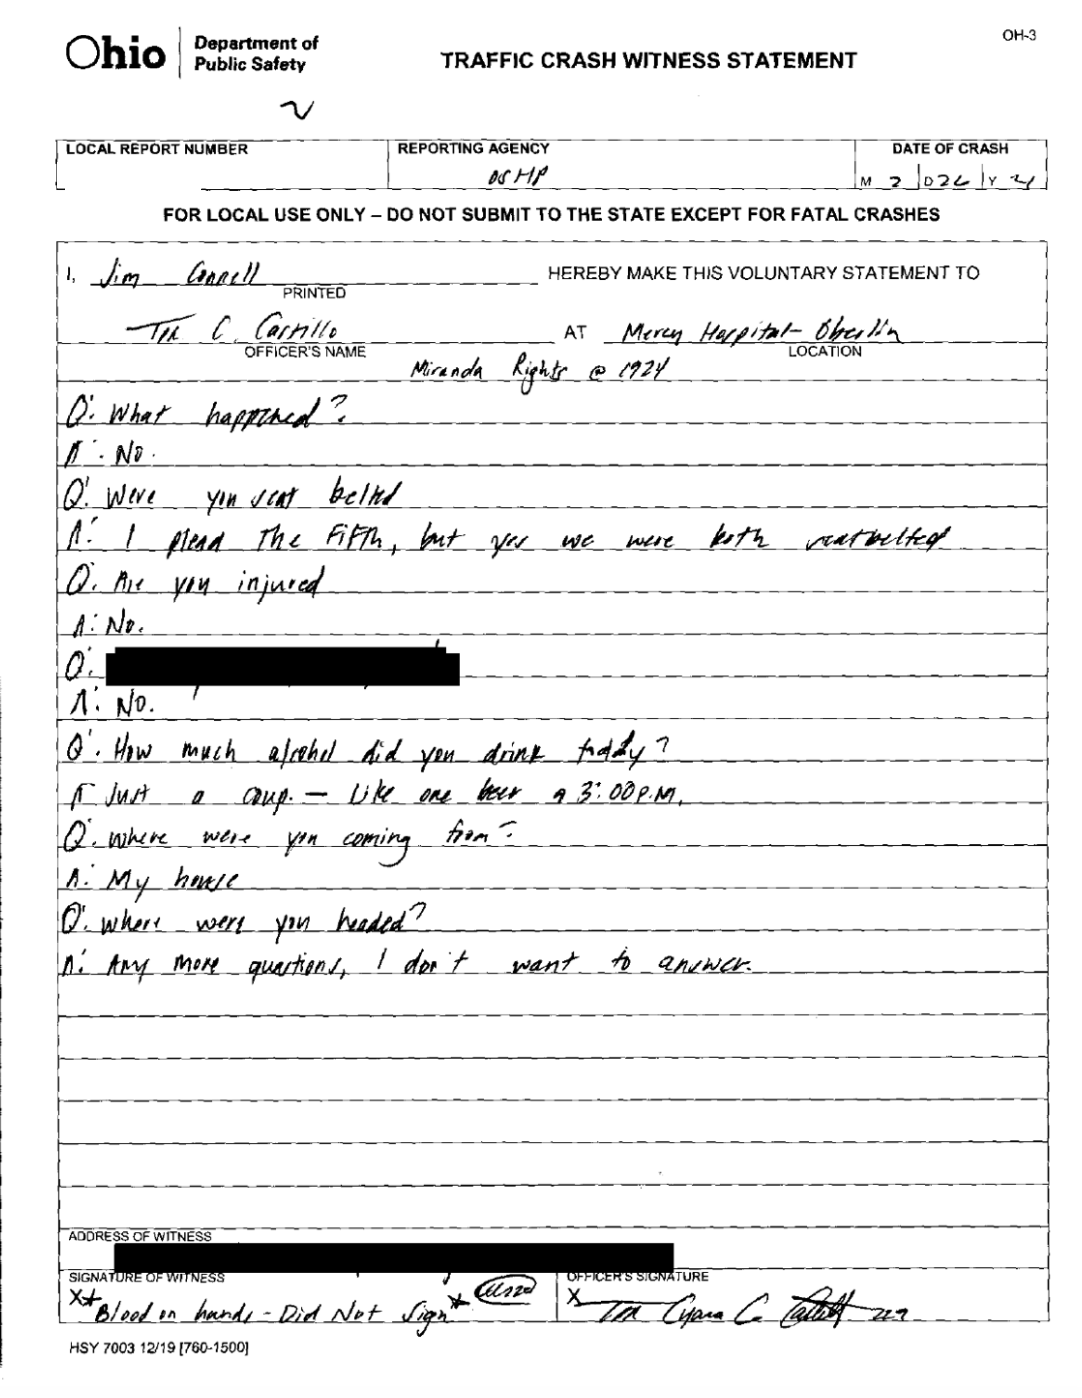 Ohio Department of Public Safety
OH-3
TRAFFIC CRASH WITNESS STATEMENT
2
LOCAL REPORT NUMBER REPORTING AGENCY DATE OF CRASH
OSHP M 2 D 26 Y 21
FOR LOCAL USE ONLY – DO NOT SUBMIT TO THE STATE EXCEPT FOR FATAL CRASHES
I, Jim Connell HEREBY MAKE THIS VOLUNTARY STATEMENT TO
PRINTED
Tpr C. Castillo AT Mercy Hospital - Oberlin
OFFICER'S NAME LOCATION
Miranda Rights @ 1924
Q: What happened?
A: No.
Q: Were you seat belted
A: I plead The Fifth, but yes we were both seatbelted
Q: Are you injured
A: No.
Q:
A: No.
Q: How much alcohol did you drink today?
A Just a coup. — Like one beer @ 3:00 P.M.
Q: Where were you coming from?
A: My house
Q: Where were you headed?
A: Any more questions, I don't want to answer.
ADDRESS OF WITNESS
SIGNATURE OF WITNESS OFFICER'S SIGNATURE
X* Blood on hands - Did Not Sign* X Tpr C.
HSY 7003 12/19 [760-1500]